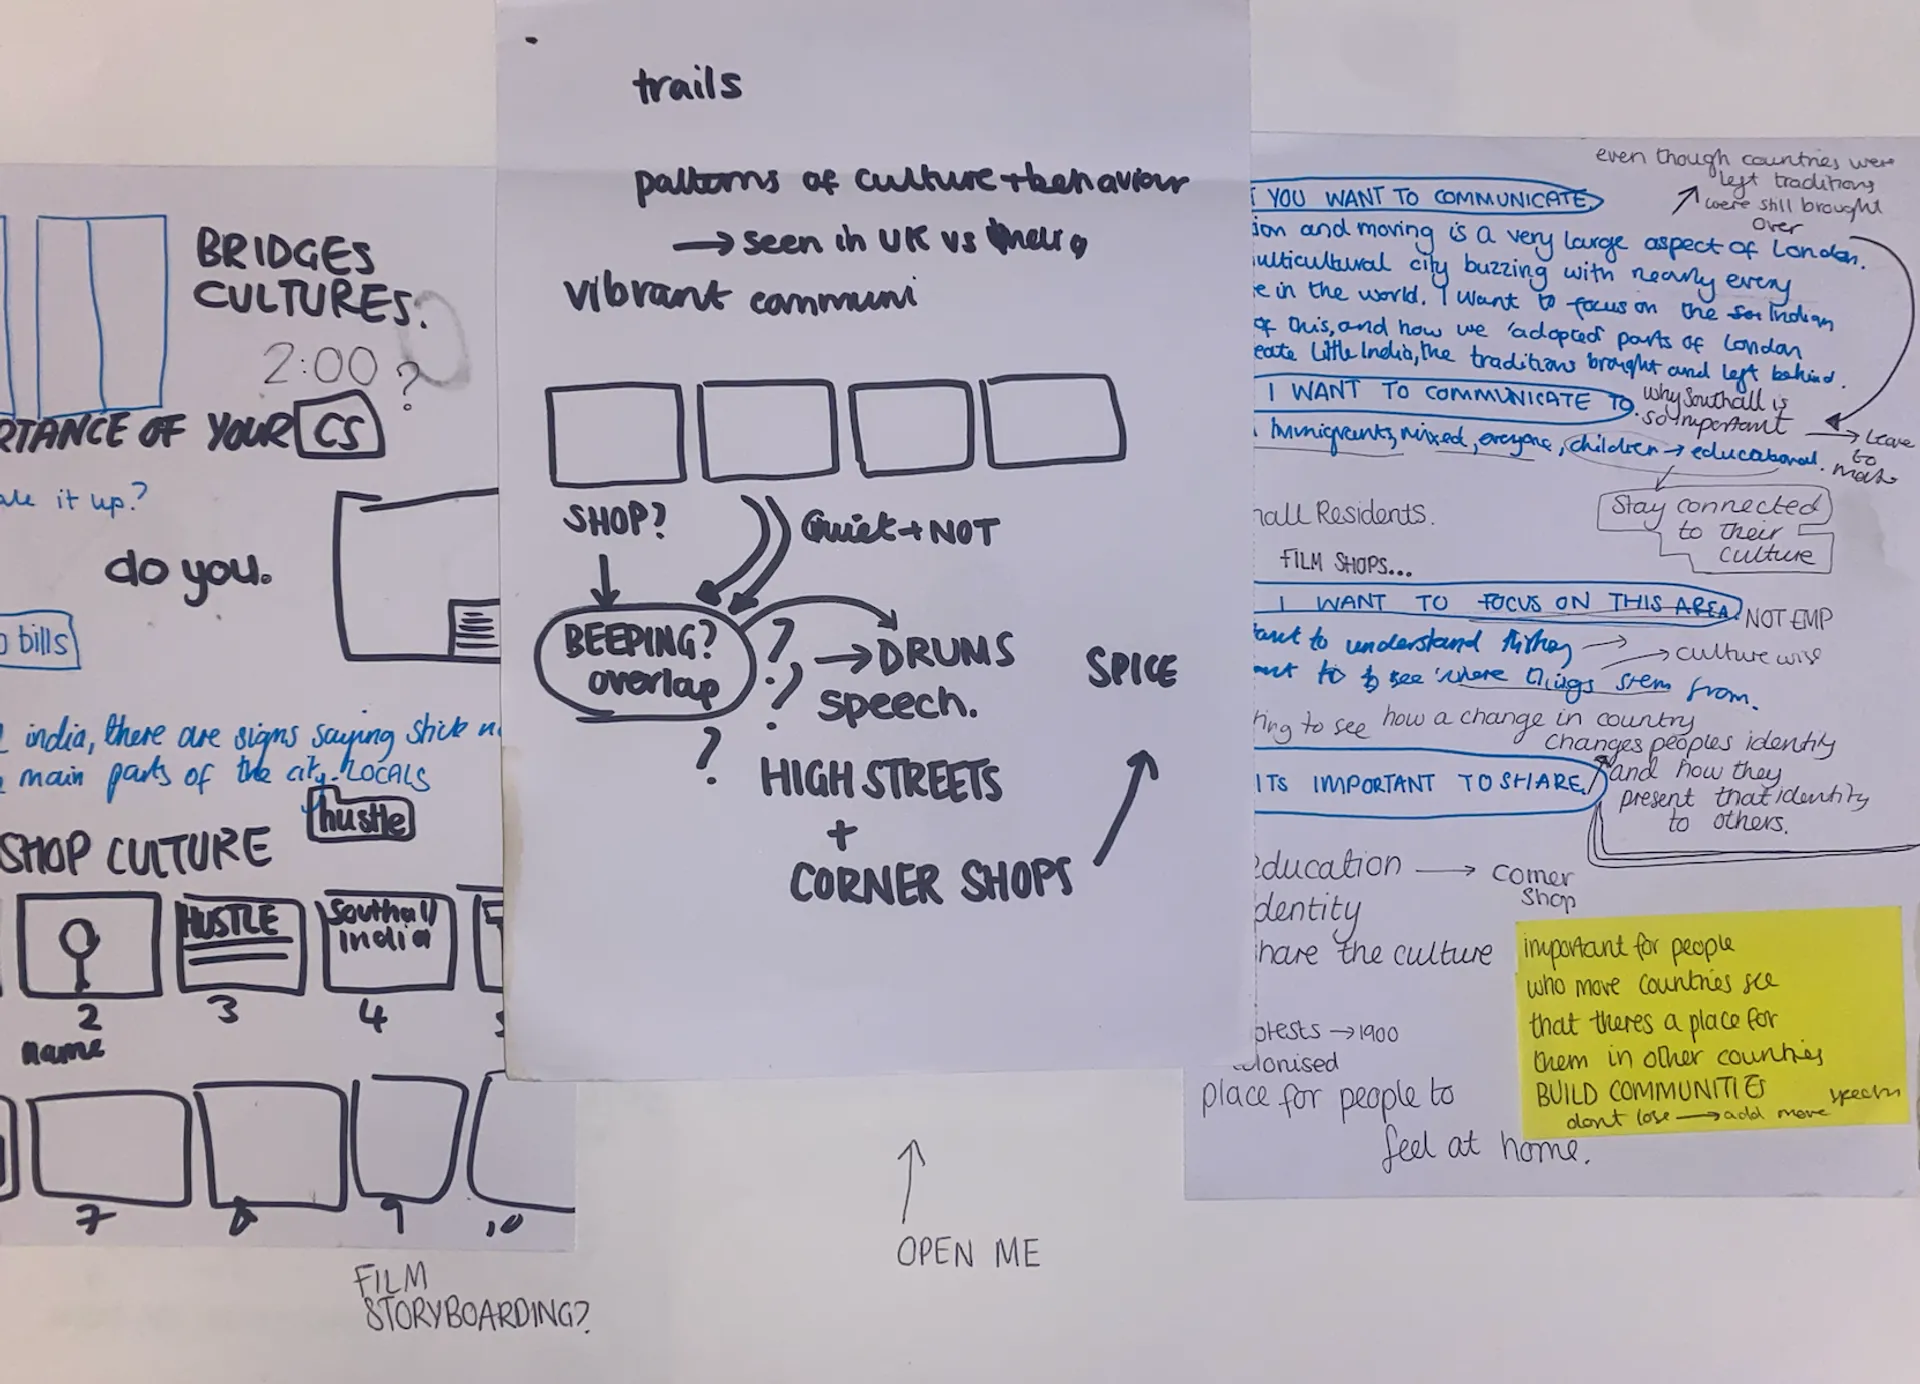 BRIDGES
CULTURES.
2:00 ?
RTANCE OF YOUR CS
it up?
do you.
bills
india, there are signs saying stick
main parts of the city. LOCALS
hustle
SHOP CULTURE
HUSTLE
Southall
india
2
3
4
name
7
8
9
10
FILM
STORYBOARDING?
trails
patterns of culture + behaviour
→ seen in UK vs India
vibrant communi
SHOP?
Quiet + NOT
BEEPING?
overlap
?
?
?
→ DRUMS
speech.
SPICE
HIGH STREETS
+
CORNER SHOPS
OPEN ME
even though countries were
left traditions
were still brought
over
YOU WANT TO COMMUNICATE
ion and moving is a very large aspect of London.
ulticultural city buzzing with nearly every
e in the world. I want to focus on the Indian
of this, and how we 'adopted' parts of London
eate Little India, the traditions brought and left behind.
I WANT TO COMMUNICATE TO.
why Southall is
so important
→ leave
to
Immigrants, mixed, everyone, children → educational.
Stay connected
to their
culture
hall Residents.
FILM SHOPS...
I WANT TO FOCUS ON THIS AREA.
NOT EMP
ant to understand →
→ culture wise
to see 'where things stem from.
ting to see how a change in country
changes peoples identity
and how they
present that identity
to others.
ITS IMPORTANT TO SHARE.
education → corner
shop
dentity
hare the culture
otests → 1900
lonised
place for people to
feel at home.
important for people
who move countries see
that theres a place for
them in other countries
BUILD COMMUNITIES
dont lose → add more
speech